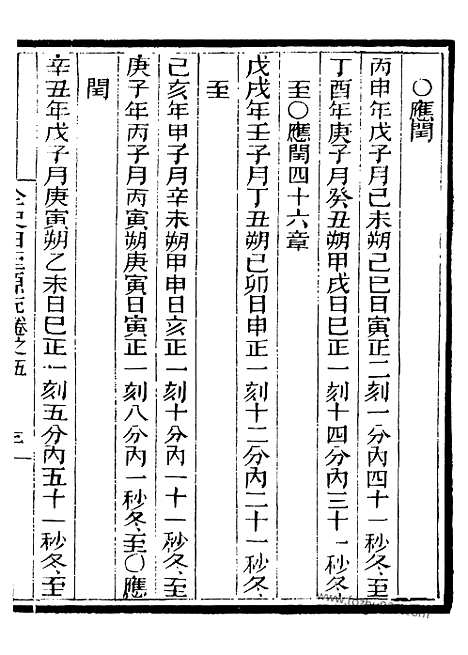 ○應閏
丙申年戊子月己未朔己巳日寅正二刻一分內四十一秒冬至
丁酉年庚子月癸丑朔甲戌日巳正一刻十四分內三十一秒冬
至○應閏四十六章
戊戌年壬子月丁丑朔己卯日申正一刻十二分內二十一秒冬
至
己亥年甲子月辛未朔甲申日亥正一刻十分內一十一秒冬至
庚子年丙子月丙寅朔庚寅日寅正一刻八分內一秒冬至○應
閏
辛丑年戊子月庚寅朔乙未日巳正一刻五分內五十一秒冬至
卷之五
三